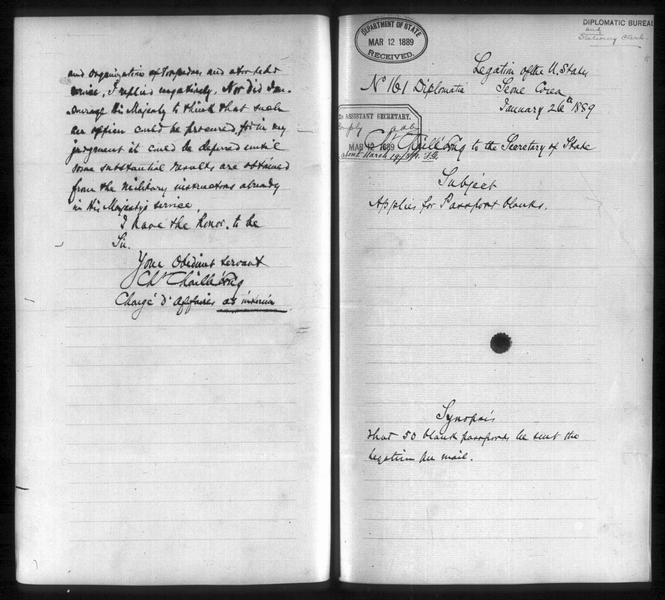 and organization of torpedoes, and a torpedo
service, I replied negatively. Nor did I en-
courage His Majesty to think that such
an officer could be procured, for in my
judgment it could be deferred until
some substantial results are obtained
from the military instructors already
in His Majesty's service.
I have the honor, to be
Sir.
Your obedient servant
Ch. Chaillé Long
Chargé d'Affaires ad interim
DIPLOMATIC BUREAU
and
Stationery Clerk.
DEPARTMENT OF STATE
MAR 12 1889
RECEIVED.
Legation of the U. States
Seoul Corea
January 26th 1889
No 161 Diplomatic
ASSISTANT SECRETARY.
MAR 12 1889
Ch. Chaillé Long to the Secretary of State
sent March
Subject
Applies for Passport blanks.
Synopsis
that 50 blank passports be sent the
legation per mail.